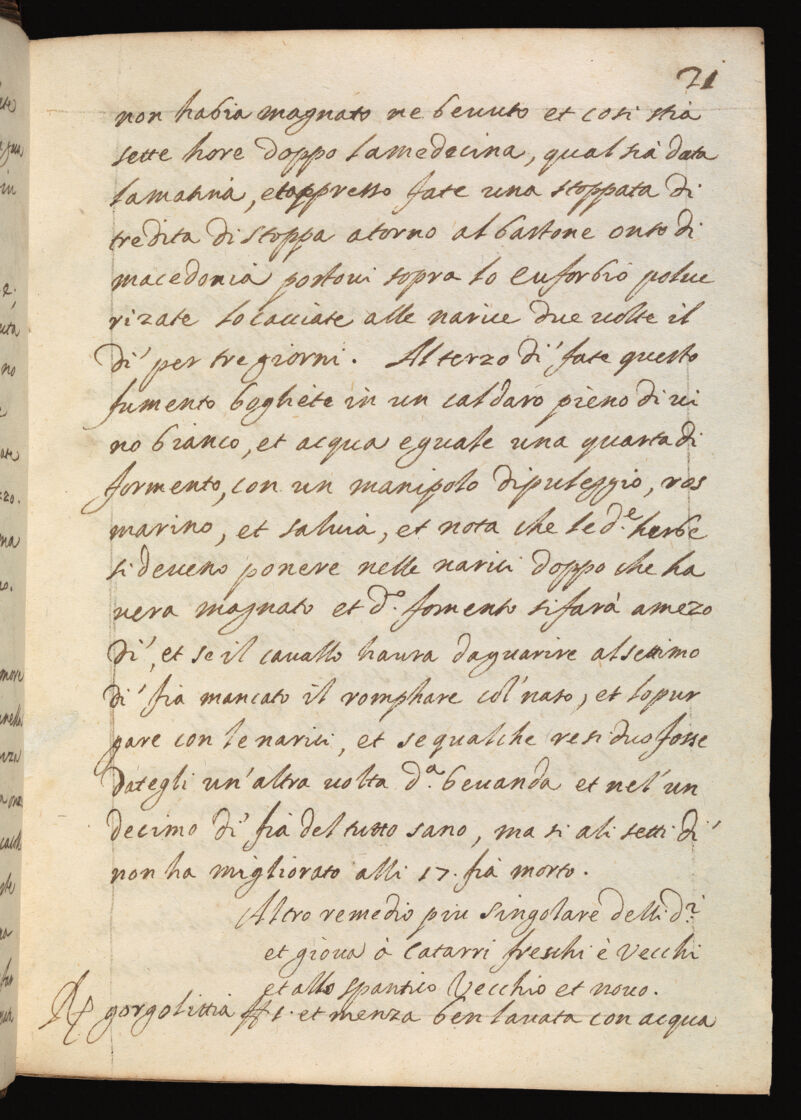 21
non habia magnato ne beuuto et cosi stià
sette hore doppo lamedecina, qual sià data
lamatinà, etappresso fate una stoppata di
tre dita di stoppa atorno al bastone onto di
macedonià postoui sopra lo euforbiò polue
rizate locacciate alle narice due uolte il
di' per tre giorni. Al terzo di' fate questo
fumento bogliete in un caldaro pieno di ui
no bianco, et acqua eguale una quarta di
formento, con un manipolo dipuleggio, ros
marino, et saluià, et nota che le d.e herbe
si deueno ponere nelle narici doppo che ha
uera magnato et d.o fomento sifarà amezo
di', et se il cauallo haura daguarire alsettimo
di' fia mancato il romphare col' naso, et lopur
gare con le narici, et sequalche residuo fosse
Dategli un'altra uolta d.a beuanda et nel'un
decimo di' fià del tutto sano, ma si ali setti di'
non ha migliorato alli 17. fià morto.
Altro remedio piu singolare delli d.i
et gioua à Catarri freschi è Vecchi
et allo spantico Vecchio et nouo.
℞ gorgolittia ℔ 1. et menza ben lauata con acqua